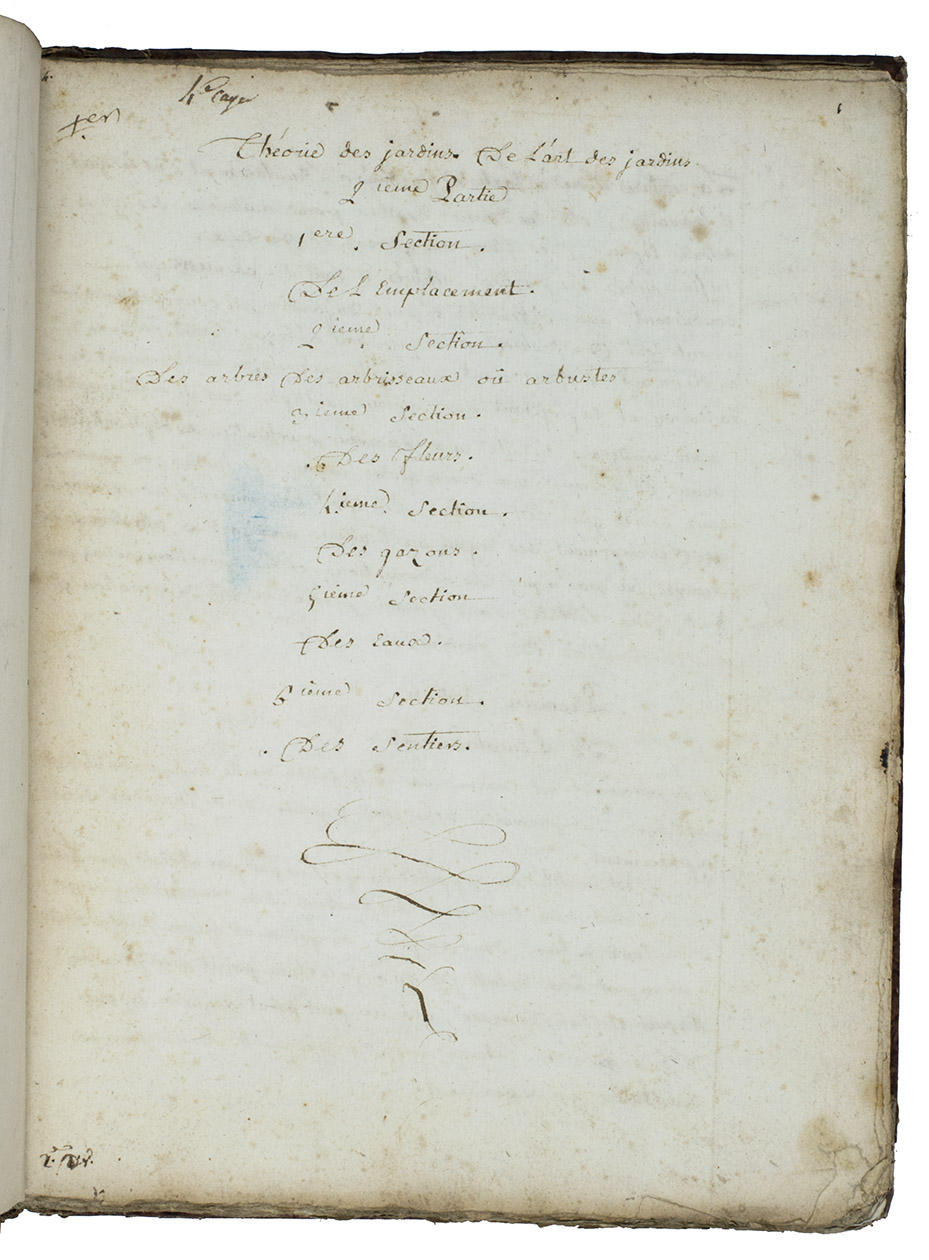 4e caye
1er
1
Théorie des jardins. De L'art des jardins
2ieme Partie
1ere. Section.
De L'Emplacement.
2ieme Section.
Des arbres Des arbrisseaux où arbustes
3ieme Section.
Des fleurs.
4.ieme Section.
Des gazons.
5ieme Section
Des Eaux.
6ieme Section.
Des Sentiers.